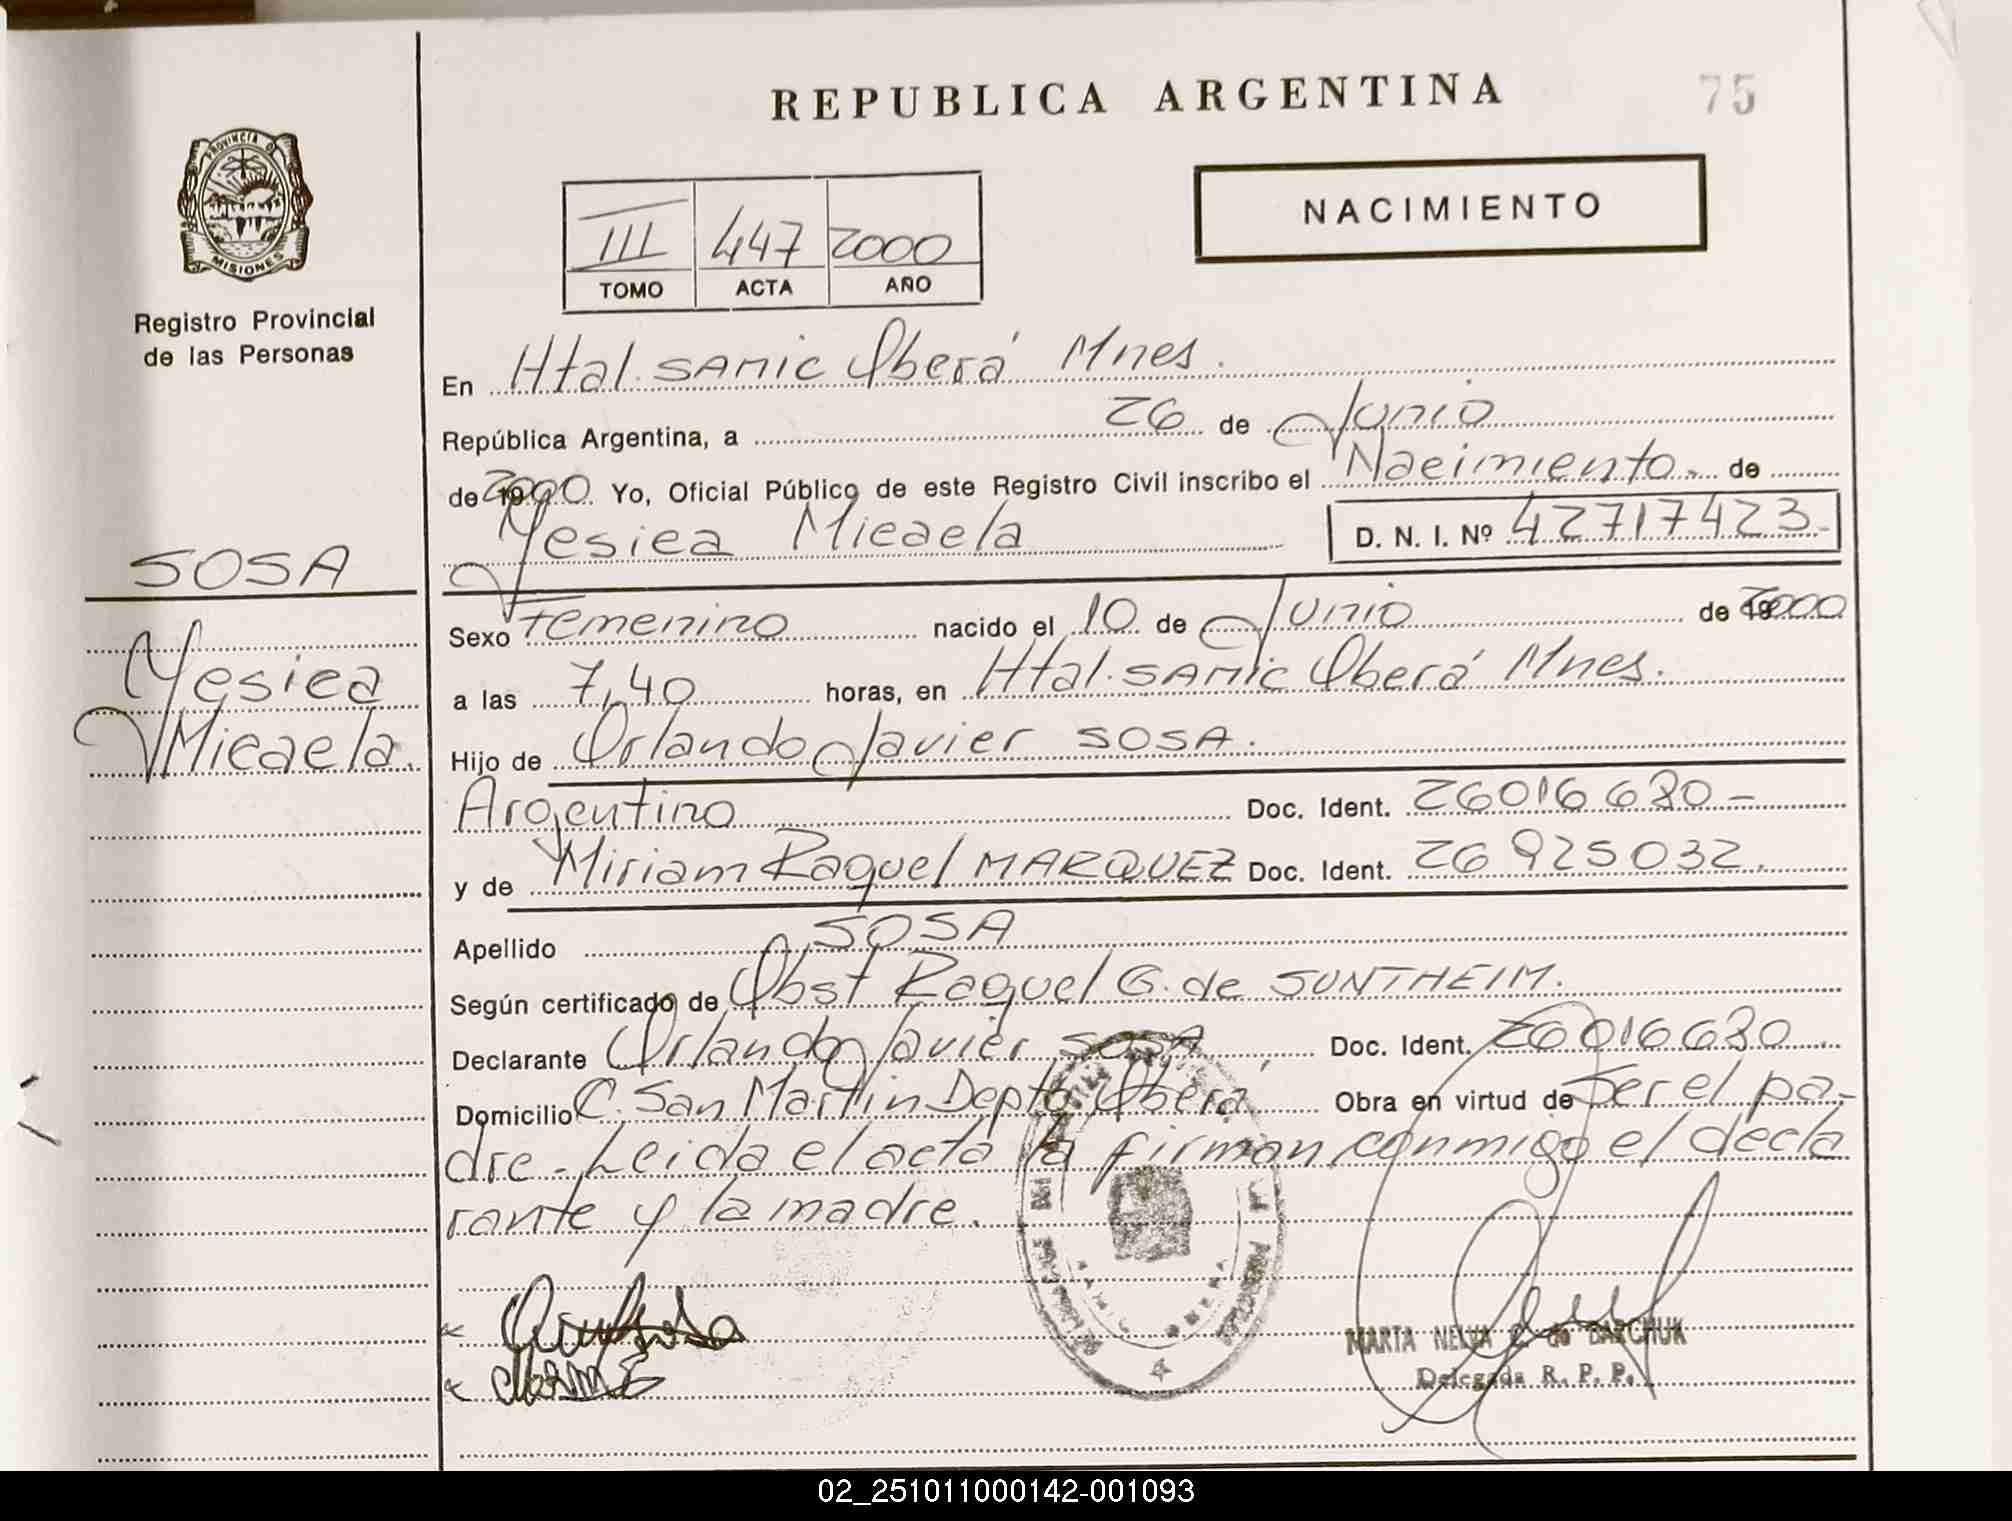 REPUBLICA ARGENTINA
75
PROVINCIA D
MISIONES
Registro Provincial
de las Personas
NACIMIENTO
III 447 2000
TOMO ACTA AÑO
En Htal. SAMIC Oberá Mnes.
República Argentina, a 26 de Junio
de 2000 Yo, Oficial Público de este Registro Civil inscribo el Nacimiento de
Yesica Micaela D. N. I. Nº 42717423-
SOSA
Yesica
Micaela.
Sexo Femenino nacido el 10 de Junio de 2000
a las 7,40 horas, en Htal. SAMIC Oberá Mnes.
Hijo de Orlando Javier SOSA.
Argentino Doc. Ident. 26016630-
y de Miriam Raquel MARQUEZ Doc. Ident. 26925032.
Apellido SOSA
Según certificado de Obst Raquel G. de SUNTHEIM.
Declarante Orlando Javier SOSA Doc. Ident. 26016630
Domicilio C. San Martin Depto Oberá Obra en virtud de ser el pa-
dre. Leida el acta la firman conmigo el decla
rante y la madre.
MARTA NELVA de BARCHUK
Delegada R. P. P.
02_251011000142-001093